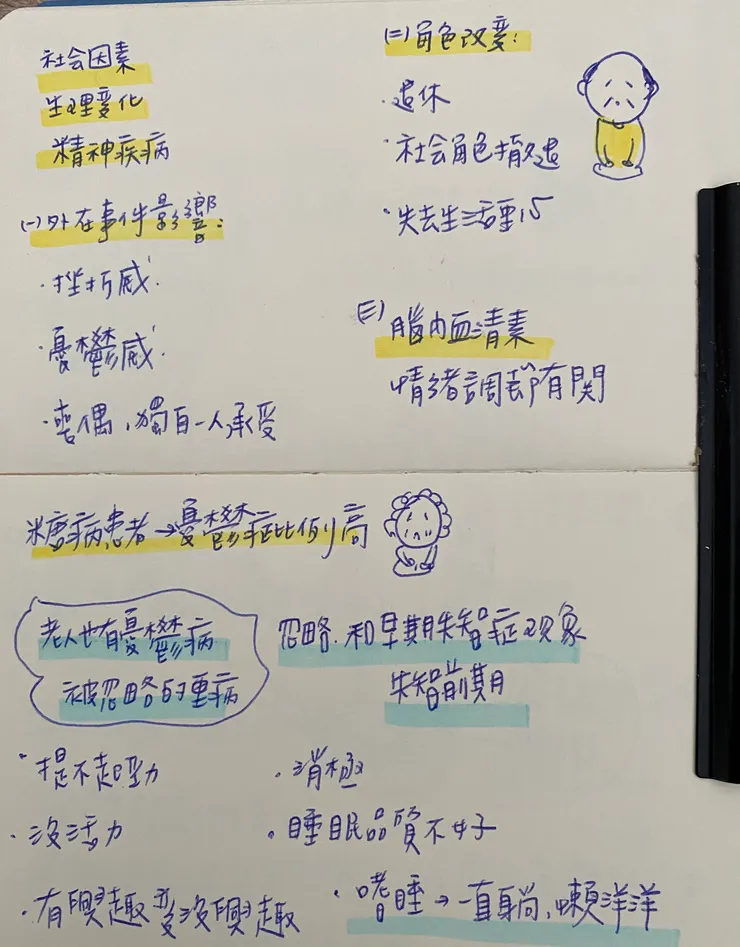 社會因素
生理變化
精神疾病
(一)外在事件影響:
·挫折感
·憂鬱感
·喪偶,獨自一人承受
(二)角色改變:
·退休
·社會角色撤退
·失去生活重心
(三)腦內血清素
情緒調節有関
糖病患者→憂鬱症比例高
老人也有憂鬱病
被忽略的重病
忽略.和早期失智症現象
失智前期
·提不起勁
·沒活力
·有興趣變沒興趣
·消極
·睡眠品質不好
·嗜睡→一直躺,懶洋洋